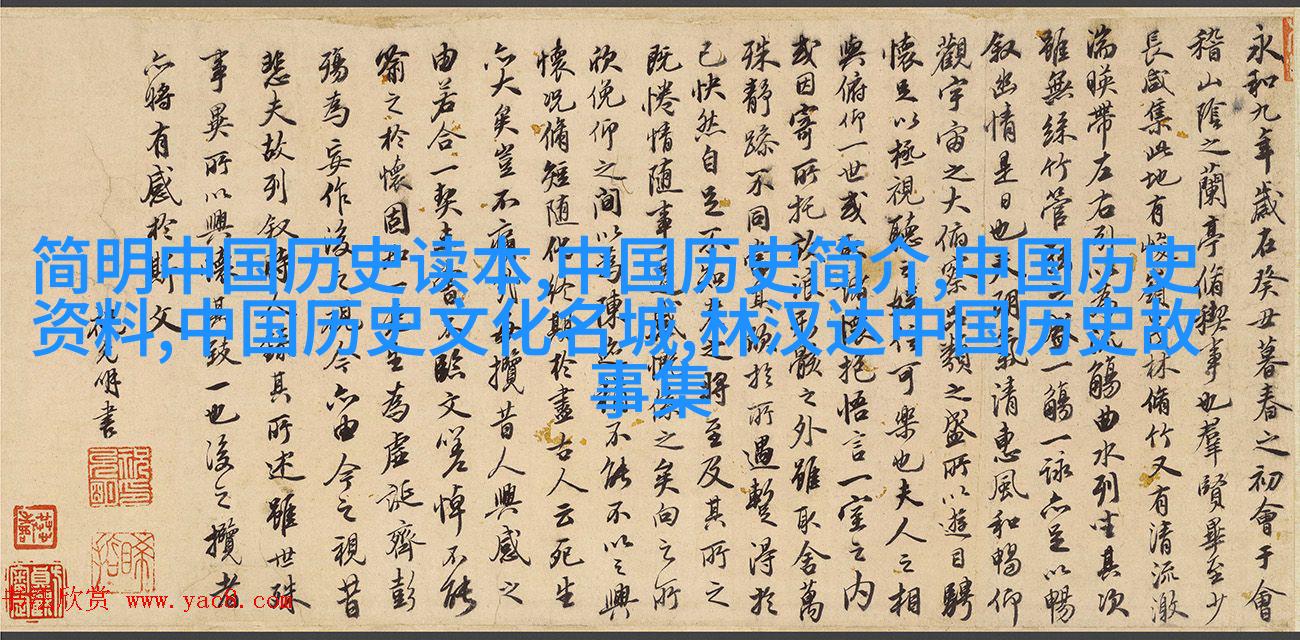 永和九年歲在癸丑暮春之初會于會
稽山陰之蘭亭脩禊事也羣賢畢至少
長咸集此地有峻林脩竹又有清流激
湍暎帶左右列以為流觴曲水列坐其次
雖無絲竹管一觴一詠亦足以暢
叙幽情是日也天朗氣清惠風和暢仰
觀宇宙之大俯察類之盛所以遊目騁
懷足以極視聽之可樂也夫人之相
與俯仰一世或懷抱悟言一室之內
或因寄所托放浪骸之外雖取舍萬
殊静躁不同當其於所遇蹔得於
已快然自足不知之將至及其所之
既惓情随事感慨係之矣向之所
欣俛仰之間以為陳迹不能不以之興
懷況脩短随化終期於盡古人云死生
亦大矣豈不痛每攬昔人興感之
由若合一契不臨文嗟悼不能
喻之於懷固一生為虛誕齊彭
殤為妄作後之視今亦由今之視昔
悲夫故列叙時其所述雖世殊
事異所以興懷其致一也後之攬者
亦將有感於斯文
明書
简明中国历史读本,中国历史简介,中国历史
资料,中国历史文化名城,林汉达中国历史故
事集
欣赏 www.yac8.com